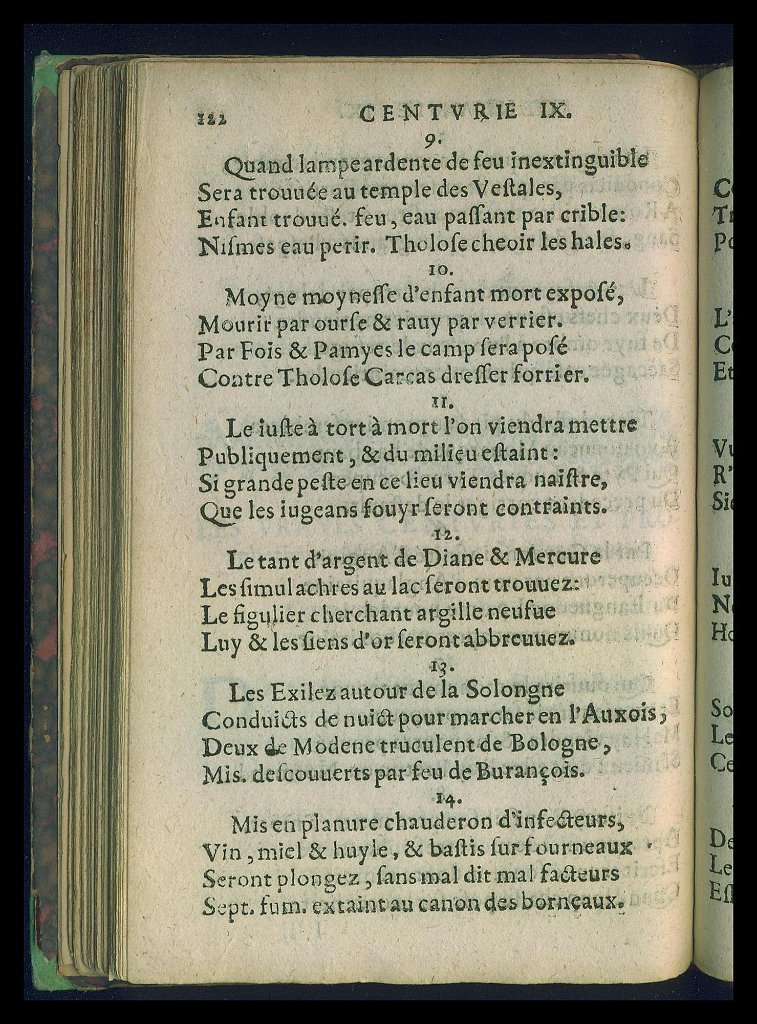 122 CENTVRIE IX.
9.
Quand lampe ardente de feu inextinguible
Sera trouuée au temple des Veſtales,
Enfant trouué. feu, eau paſſant par crible:
Niſmes eau perir. Tholoſe cheoir les hales.
10.
Moyne moyneſſe d'enfant mort expoſé,
Mourir par ourſe & rauy par verrier.
Par Fois & Pamyes le camp ſera poſé
Contre Tholoſe Carcas dreſſer forrier.
11.
Le iuſte à tort à mort l'on viendra mettre
Publiquement, & du milieu eſtaint:
Si grande peſte en ce lieu viendra naiſtre,
Que les iugeans fouyr ſeront contraints.
12.
Le tant d'argent de Diane & Mercure
Les ſimulachres au lac ſeront trouuez:
Le figulier cherchant argille neufue
Luy & les ſiens d'or ſeront abbreuuez.
13.
Les Exilez autour de la Solongne
Conduicts de nuict pour marcher en l'Auxois,
Deux de Modene truculent de Bologne,
Mis. deſcouuerts par feu de Burançois.
14.
Mis en planure chauderon d'infecteurs,
Vin, miel & huyle, & baſtis ſur fourneaux
Seront plongez, ſans mal dit mal facteurs
Sept. fum. extaint au canon des borneaux.